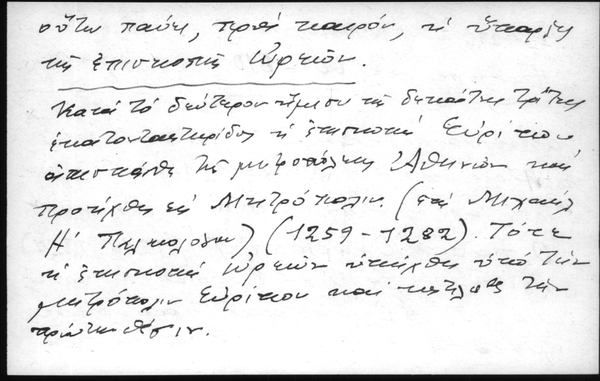 οὕτω παύει, πρὸς καιρόν, ἡ ὕπαρξις
τῆς ἐπισκοπῆς Ὠρεῶν.
Κατά τό δεύτερον ἥμισυ τῆς δεκάτης τρίτης
ἑκατονταετηρίδος ἡ ἐπισκοπή Εὐρίπου
ἀπεσπάσθη τῆς μητροπόλεως Ἀθηνῶν καί
προήχθη εἰς Μητρόπολιν. (ἐπί Μιχαήλ
Η' Παλαιολόγου) (1259-1282). Τότε
ἡ ἐπισκοπή Ὠρεῶν ὑπήχθη ὑπό τήν
μητρόπολιν Εὐρίπου καί κατέλαβε τήν
πρώτην θέσιν.